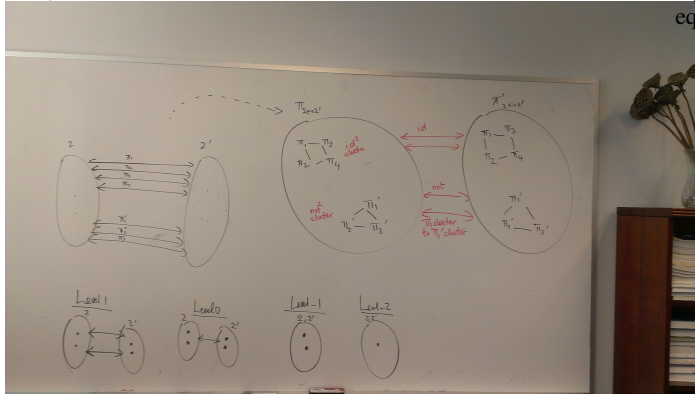 eq
π₂↔₂'
π'₂↔₂'
2
2'
π₁
π₂
π₃
π₄
π₁'
π₂'
π₃'
π₁ π₃
π₂ π₄
id²
cluster
not²
cluster
π₁'
π₂' π₃'
id
not
π cluster
to π' cluster
π₁ π₃
π₂ π₄
π₁'
π₂' π₃'
Level 1
2
2'
Level 0
2
2'
Level -1
2,2'
Level -2